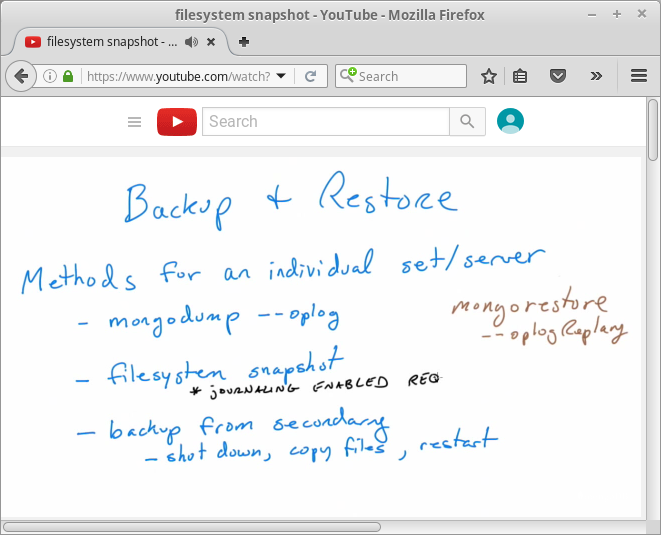 filesystem snapshot - YouTube - Mozilla Firefox
filesystem snapshot - ...
https://www.youtube.com/watch?
Search
Search
Backup + Restore
Methods for an individual set/server
- mongodump --oplog
mongorestore
--oplogReplay
- filesystem snapshot
* JOURNALING ENABLED REQ
- backup from secondary
- shut down, copy files, restart